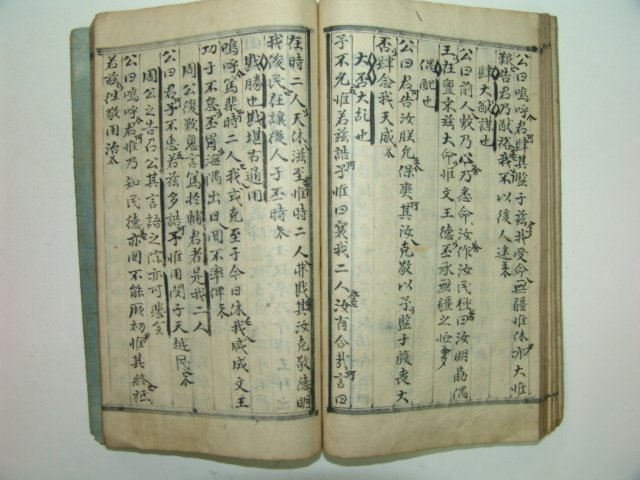 公曰嗚呼君肆其監于玆我受命無疆惟休亦大惟
艱告君乃猷裕我不以後人迷
肆大猷謀也
公曰前人敷乃心乃悉命汝作汝民極曰汝明勗偶
王在亶乘玆大命惟文王德丕承無疆之恤
偶配也
公曰君告汝朕允保奭其汝克敬以予監于殷喪大
否肆念我天威
大否大乱也
予不允惟若玆誥予惟曰襄我二人汝有合哉言曰
在時二人天休滋至惟時二人弗戡其汝克敬德明
我俊民在讓後人于丕時
戡勝也戡堪古通用
嗚呼篤棐時二人我式克至于今日休我咸成文王
功于不怠丕冒海隅出日罔不率俾
周公復歎息言篤於輔君者是我二人
公曰君予不惠若玆多誥予惟用閔于天越民
周公之告召公其言語之際亦可悲矣
公曰嗚呼君惟乃知民德亦罔不能厥初惟其終祗
若玆往敬用治